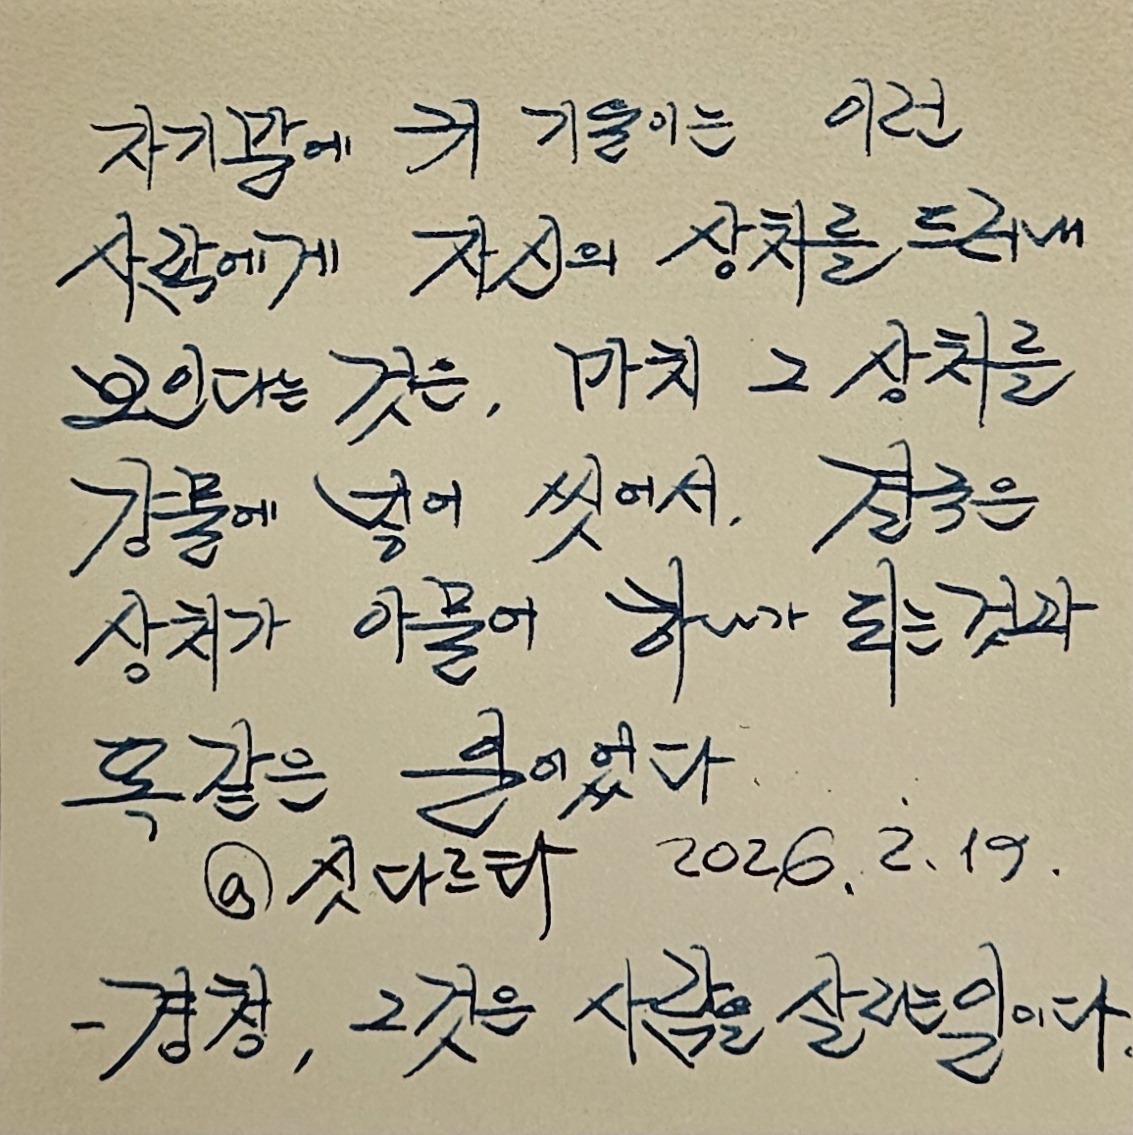 자기품에 귀 기울이는 이런
사람에게 자신의 상처를 드러내
보인다는 것은, 마치 그 상처를
강물에 넣어 씻어서, 결국은
상처가 아물어 하나가 되는것과
똑같은 일이었다
@싯다르타 2026. 2. 19.
- 경청, 그것은 사람을 살리는일이다.